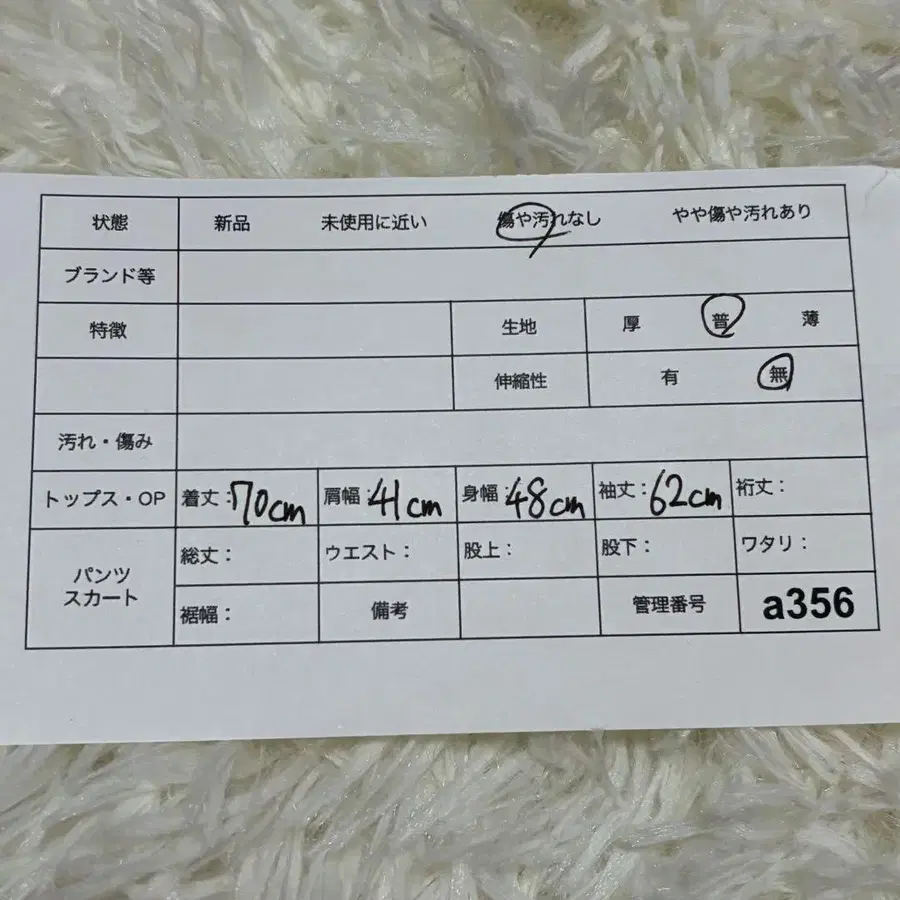 状態 新品 未使用に近い 傷や汚れなし やや傷や汚れあり
ブランド等
特徴 生地 厚 普 薄
伸縮性 有 無
汚れ・傷み
トップス・OP 着丈：70cm 肩幅：41cm 身幅：48cm 袖丈：62cm 裄丈：
パンツ スカート 総丈： ウエスト： 股上： 股下： ワタリ：
裾幅： 備考 管理番号 a356